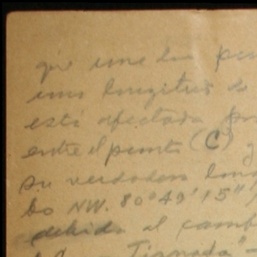 que une los pun
una longitud de
está afectada por
entre el punto (C) y
su verdadera long
bo NW. 80°49'15"
debido al camb
"Tignada"